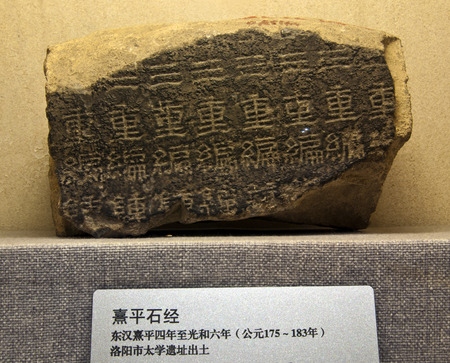 重
三重編
三重編
三重編
三重編
三重編
三重編
重編
熹平石经
东汉熹平四年至光和六年（公元175～183年）
洛阳市太学遗址出土